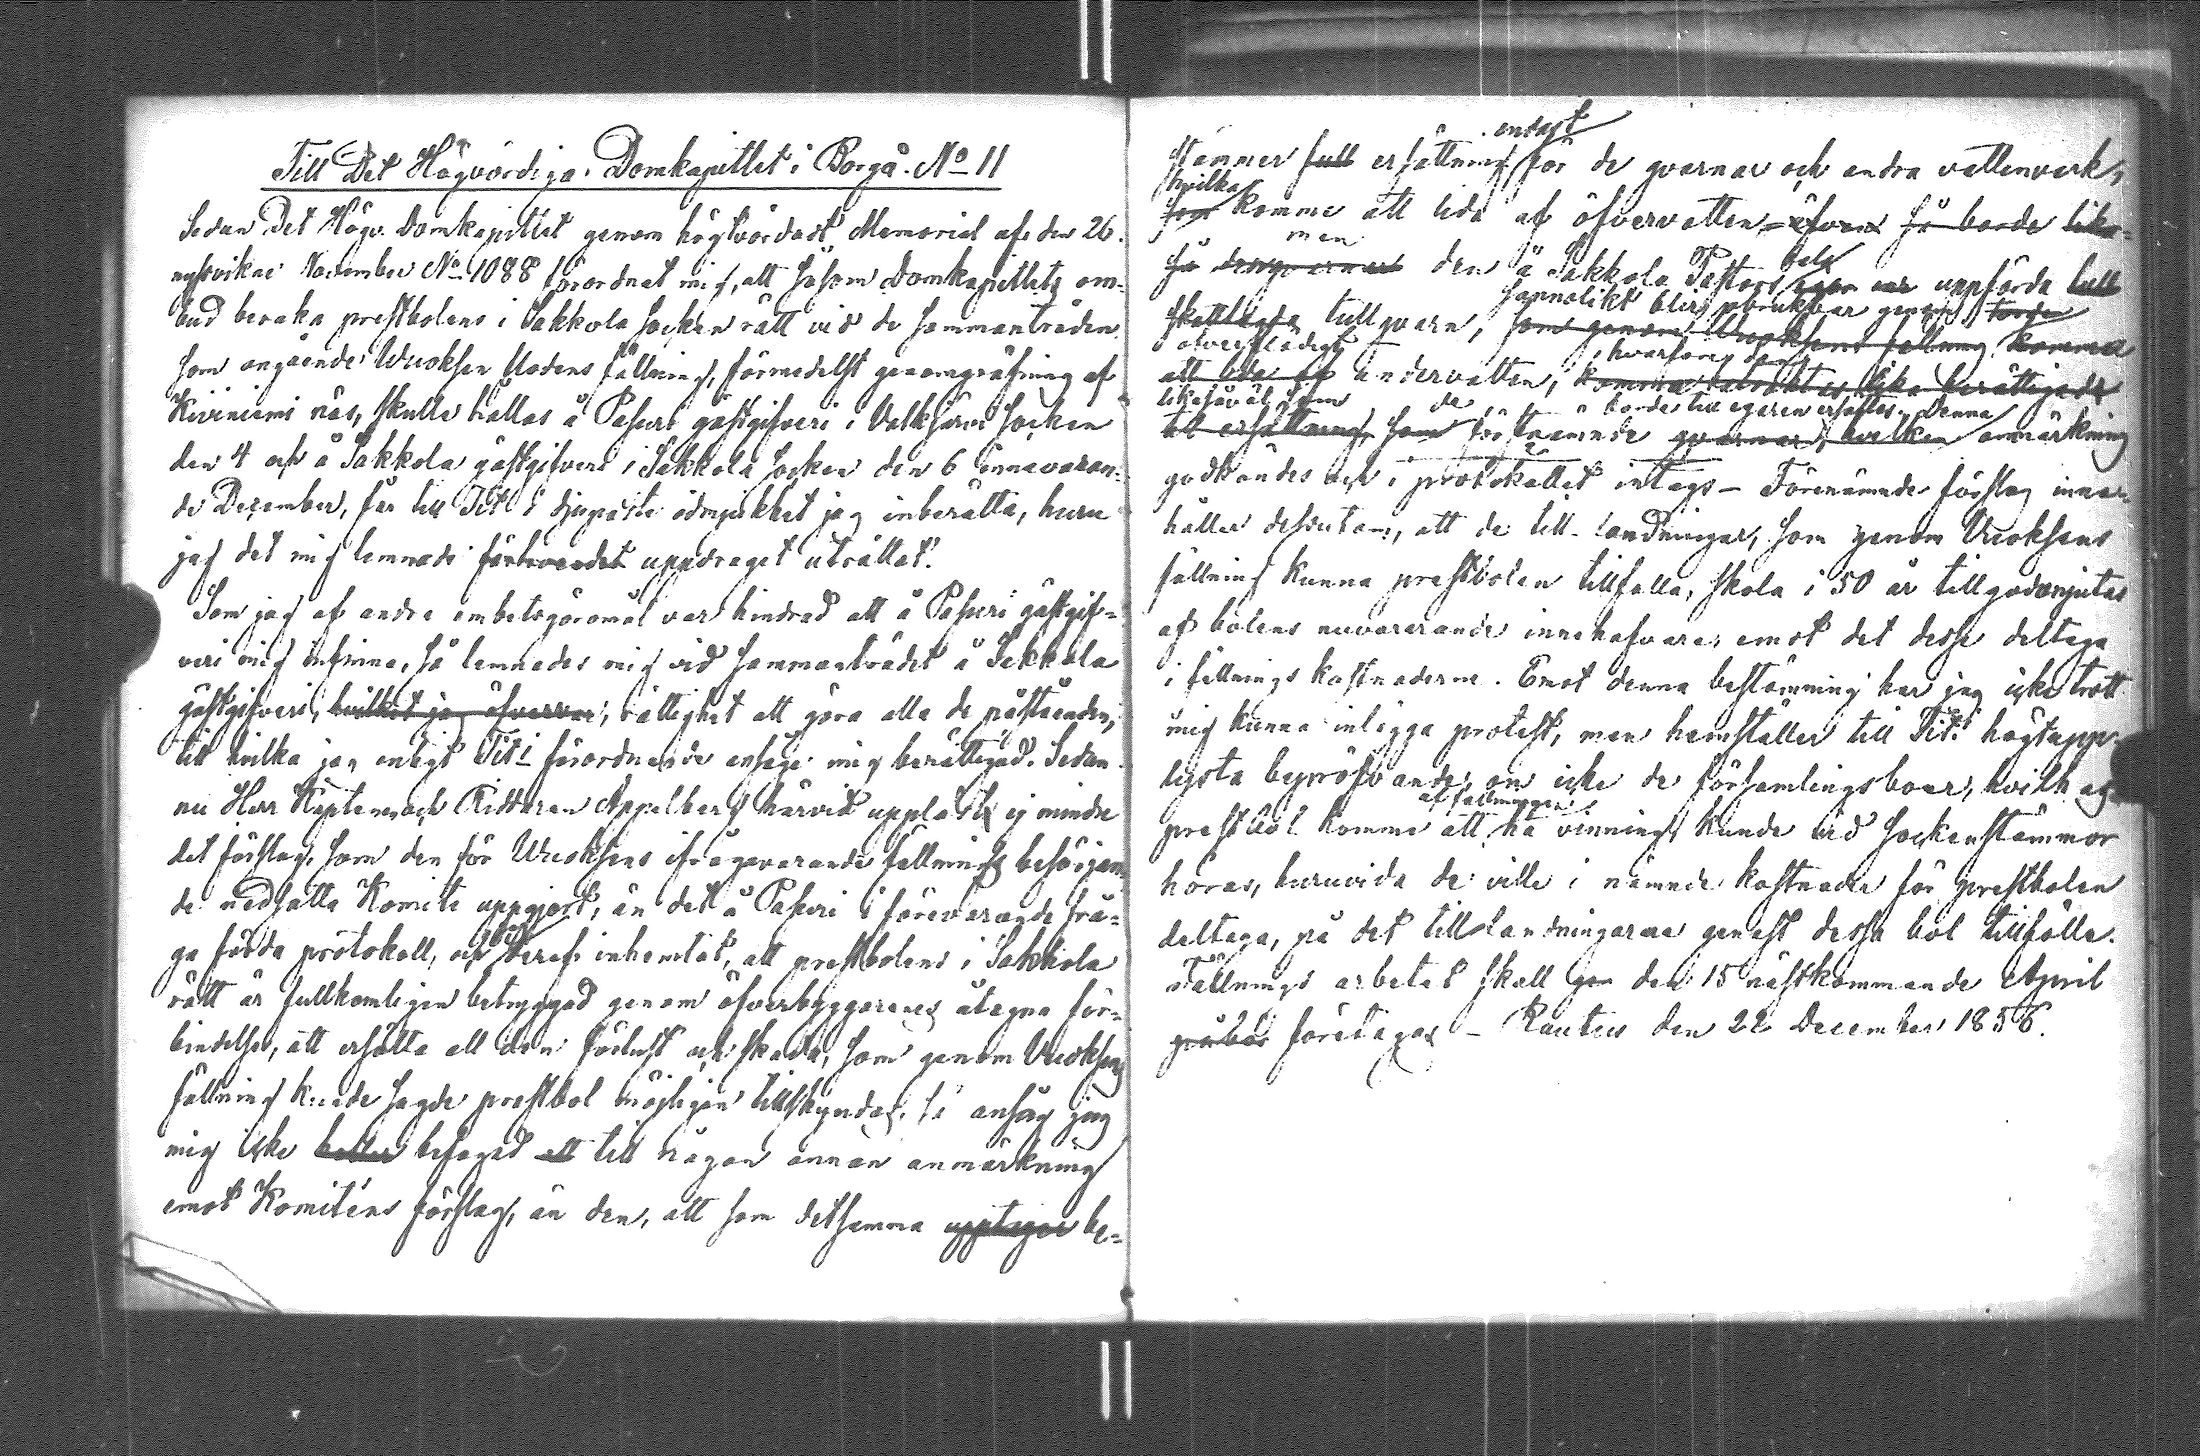 Till Det Högvördiga Domkapitlet i Borgå. No 11
Sedan Det Högv. Domkapitlet genom högtvördadt Memorial af den 26
nystvikne November No 1088 förordnat mig, att såsom Domkapitlets om-
bud bevaka prestbolens i Sakkola socken rätt vid de sammanträden,
som angående Wuoksen flodens fällning, förmedelst genomgräfning af
Kiviniemi näs, skulle hållas å Pasuri gästgifveri i Valkjärvi socken
den 4 och å Sakkola gästgifveri i Sakkola socken den 6 innevaran-
de December, får till Tit. i djupaste ödmjukhet jag inberätta, huru
jag det mig lemnade förtroendet uppdraget uträttat.
Som jag af andra embetsgöromål var hindrad att å Pasuri gästgif-
veri mig infinna, så lemnades mig vid sammanträdet å Sakkola
gästgifveri, hvilket jag öfvervar, rättighet att göra alla de påståenden,
till hvilka jag enligt Tits förordnande ansåge mig berättigad. Sedan
nu Herr Kaptenen och Riddaren Appelberg härvid uppläste ej mindre
det förslag, som den för Wuoksens ifrågavarande fällnings besörjan-
de nedsatta Komité uppgjort, än det å Pasuri i förevarande frå-
ga förda protokoll, och jag deraf inhemtat, att prestbolens i Sakkola
rätt är fullkomligen betryggad genom öfverbyggarenes åtagna för-
bindelse, att ersätta all den förlust och skada, som genom Vuoksens
fällning kunde sagde prestbol möjligen tillskyndas, så ansåg jag
mig icke heller befogad att till någon annan anmärkning
emot Komiténs förslag, än den, att som detsamma upptager be-
endast
stämmer full ersättning för de qvarnar och andra vattenverk,
hvilka
som komme att lida af öfvervatten, äfven så borde lika-
men
så den å Sakkola Pastors bol uppförda
sannolikt blir obrukbar genom
skattlagda tullqvarn, som genom Vuoksens fällning komma
öfverflödigt hvarföre den
att lida af undervatten, komma lika berättigade
likasåväl som de borde till egaren ersättas. Denna
till ersättning, som förstnämnde qvarnar, hvilken anmärkning
godkändes och i protokollet intogs – Förenämnde förslag inne-
håller dessutom, att de till-landningar, som genom Vuoksens
fällning kunna prestbolen tillfalla, skola i 50 år tillgodonjutas
af bolens nuvarande innehafvare, emot det desse deltaga
i fällnings kostnaderne. Emot denna bestämning har jag icke trott
mig kunna inlägga protest, men hemställer till Tits högtupp-
lysta bepröfvande, om icke de församlingsboar, hvilka af
af fällningen
prestbol komme att ha vinning, kunde vid sockenstämmor
höras, huruvida de ville i nämnde kostnader för prestbolen
deltaga, på det tillandningarna genast dessa bol tillfölle.
Fällnings arbetet skall den 15 nästkommande April
företagas – Rautus den 22 December 1856.